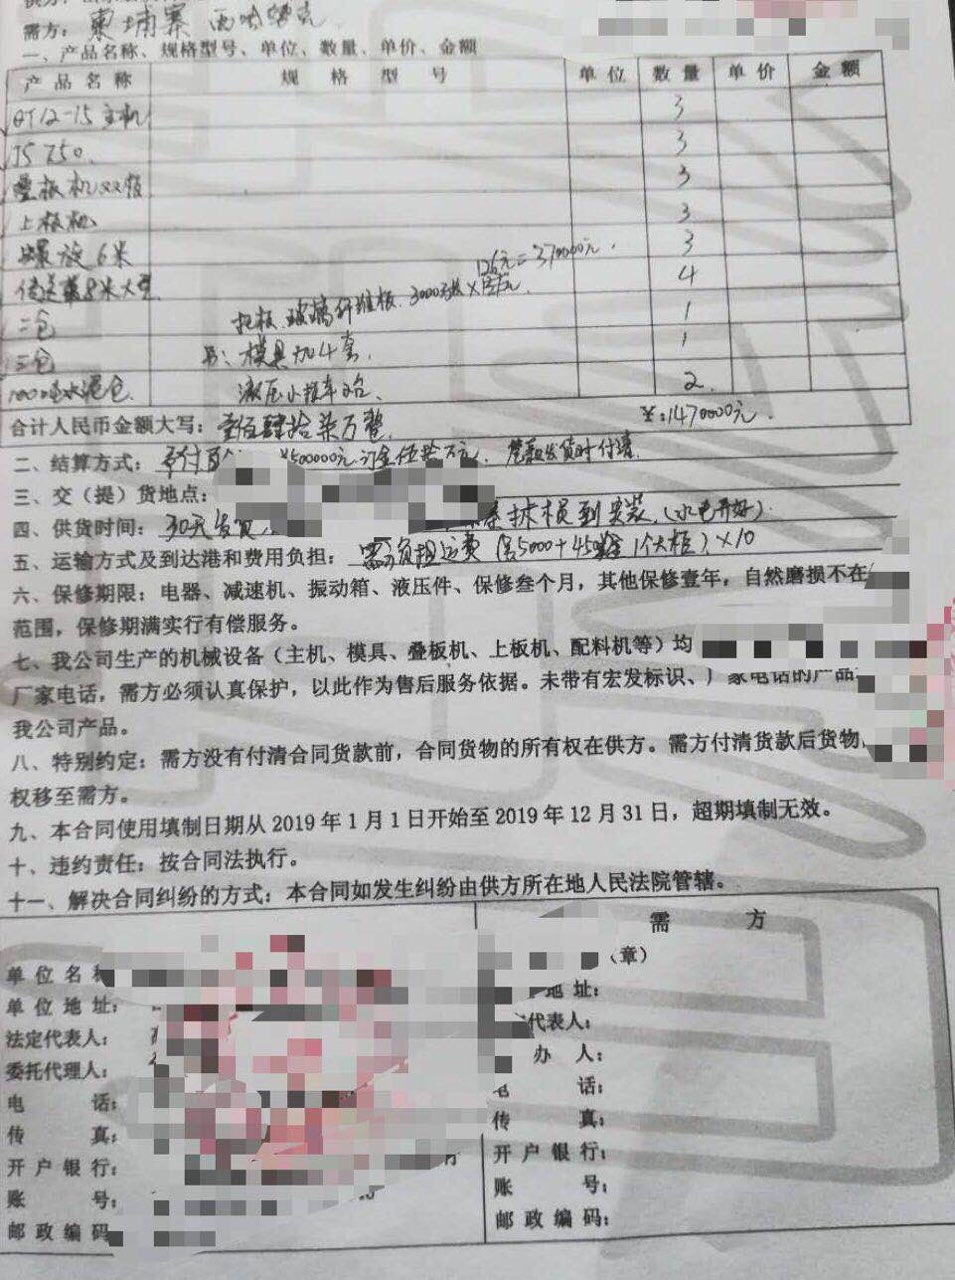 需方：柬埔寨 西哈努克
一、产品名称、规格型号、单位、数量、单价、金额
产品名称 规格型号 单位 数量 单价 金额
QT12-15主机 3
JS750. 3
叠板机 3
上板机 3
螺旋6米 3
8米 4
二仓 托板.玻璃纤维板. 126元=370000元. 1
三仓 另：模具加4套. 1
水泥仓. 液压小推车2台 2.
合计人民币金额大写：壹佰肆拾柒万整 ¥:1470000元.
二、结算方式： ¥500000元.订金伍拾万元. 发货时付清
三、交（提）货地点：
四、供货时间：30天发货 到安装.(水电弄好).
五、运输方式及到达港和费用负担：需方负担运费 ×10
六、保修期限：电器、减速机、振动箱、液压件、保修叁个月，其他保修壹年，自然磨损不在
范围，保修期满实行有偿服务。
七、我公司生产的机械设备（主机、模具、叠板机、上板机、配料机等）均
厂家电话，需方必须认真保护，以此作为售后服务依据。未带有宏发标识、厂家电话的产品
我公司产品。
八、特别约定：需方没有付清合同货款前，合同货物的所有权在供方。需方付清货款后货物
权移至需方。
九、本合同使用填制日期从2019年1月1日开始至2019年12月31日，超期填制无效。
十、违约责任：按合同法执行。
十一、解决合同纠纷的方式：本合同如发生纠纷由供方所在地人民法院管辖。
需方
单位名称 （章）
单位地址： 地址：
法定代表人： 代表人：
委托代理人： 办人：
电话： 电话：
传真： 传真：
开户银行： 开户银行：
账号： 账号：
邮政编码 邮政编码：